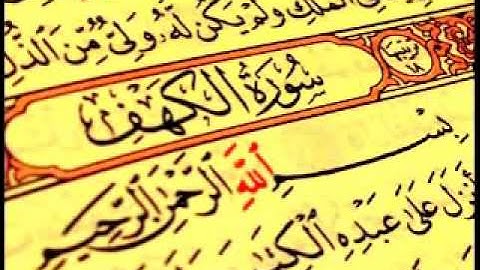 فِي ٱلۡمُلۡكِ وَلَمۡ يَكُن لَّهُۥ وَلِيّٞ مِّنَ ٱلذُّلِّ
سُورَةُ الكَهْفِ
بِسۡمِ ٱللَّهِ ٱلرَّحۡمَٰنِ ٱلرَّحِيمِ
أَنزَلَ عَلَىٰ عَبۡدِهِ ٱلۡكِتَٰبَ